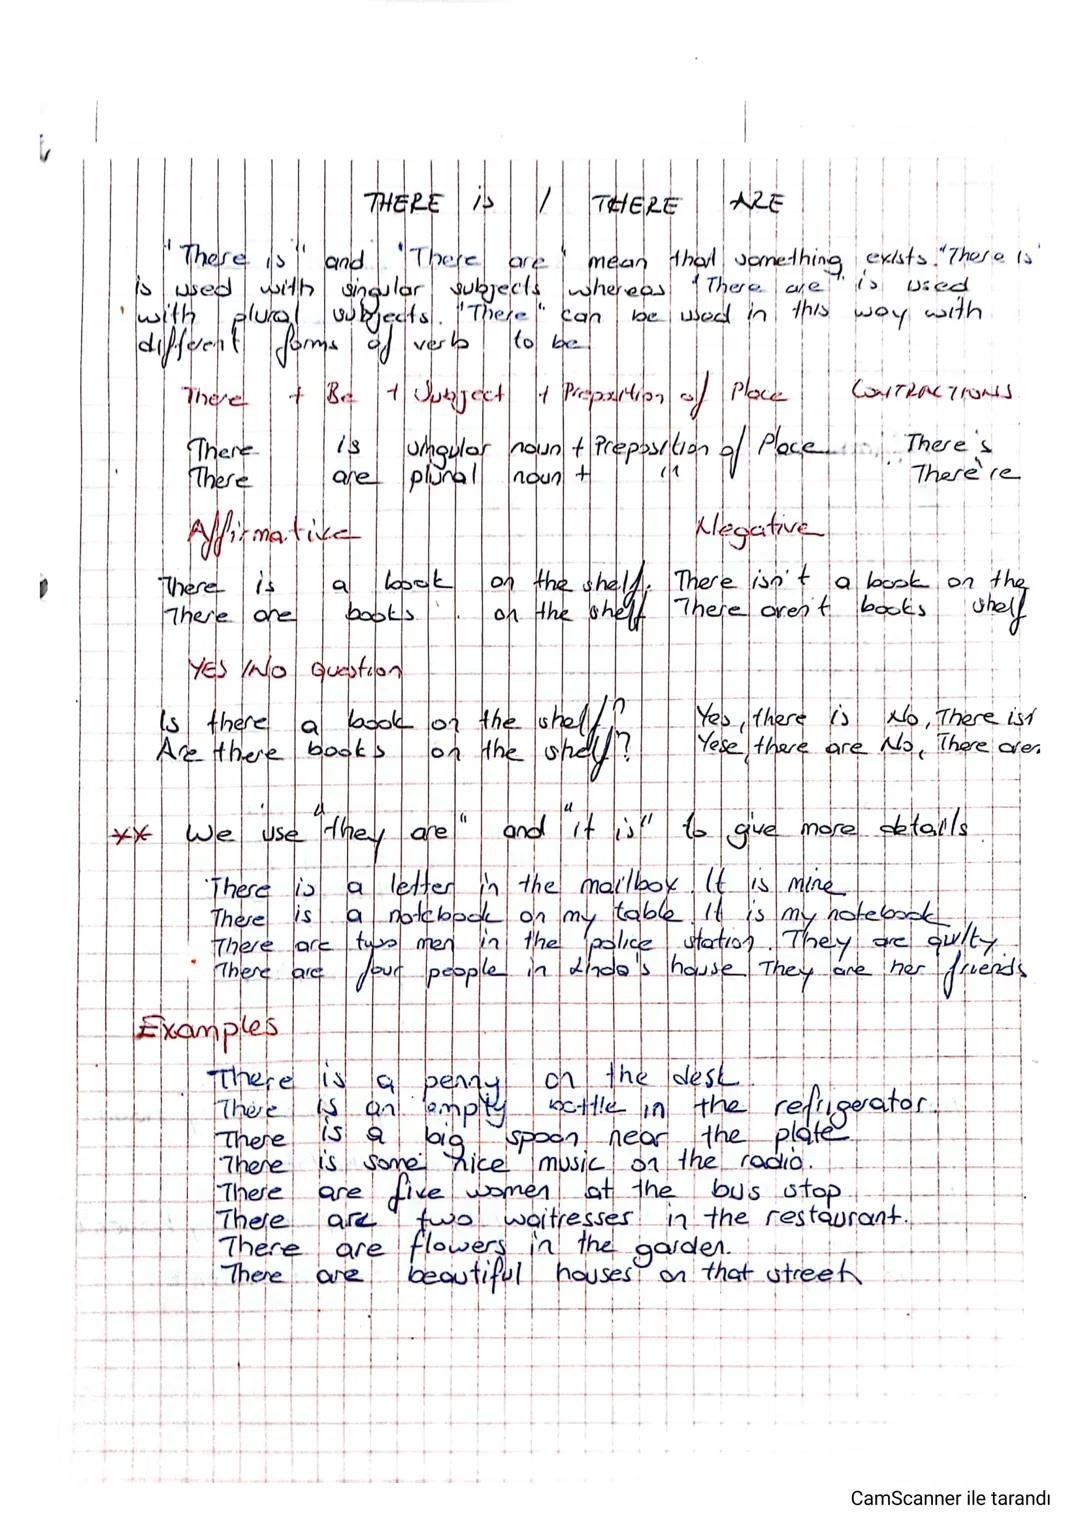 THERE is / THERE ARE
"There is" and "There are" mean that something exists. "There is"
is used with singular subjects whereas "There are" is used
with plural subjects. "There" can be used in this way with
different forms of verb to be
There + Be + Subject + Preposition of Place CONTRACTIONS
There is singular noun + Preposition of Place There's
There are plural noun + " There're
Affirmative Negative
There is a book on the shelf. There isn't a book on the
There are books on the shelf There aren't books shelf
YES/NO Question
Is there a book on the shelf? Yes, there is No, There isn
Are there books on the shelf? Yese, there are No, There aren
** We use "they are" and "it is" to give more details
There is a letter in the mailbox. It is mine
There is a notebook on my table. It is my notebook
There are two men in the police station. They are guilty
There are four people in Linda's house They are her friends
Examples
There is a penny on the desk
There is an empty bottle in the refrigerator.
There is a big spoon near the plate
There is some nice music on the radio.
There are five women at the bus stop
There are two waitresses in the restaurant.
There are flowers in the garden.
There are beautiful houses on that street
CamScanner ile tarandı